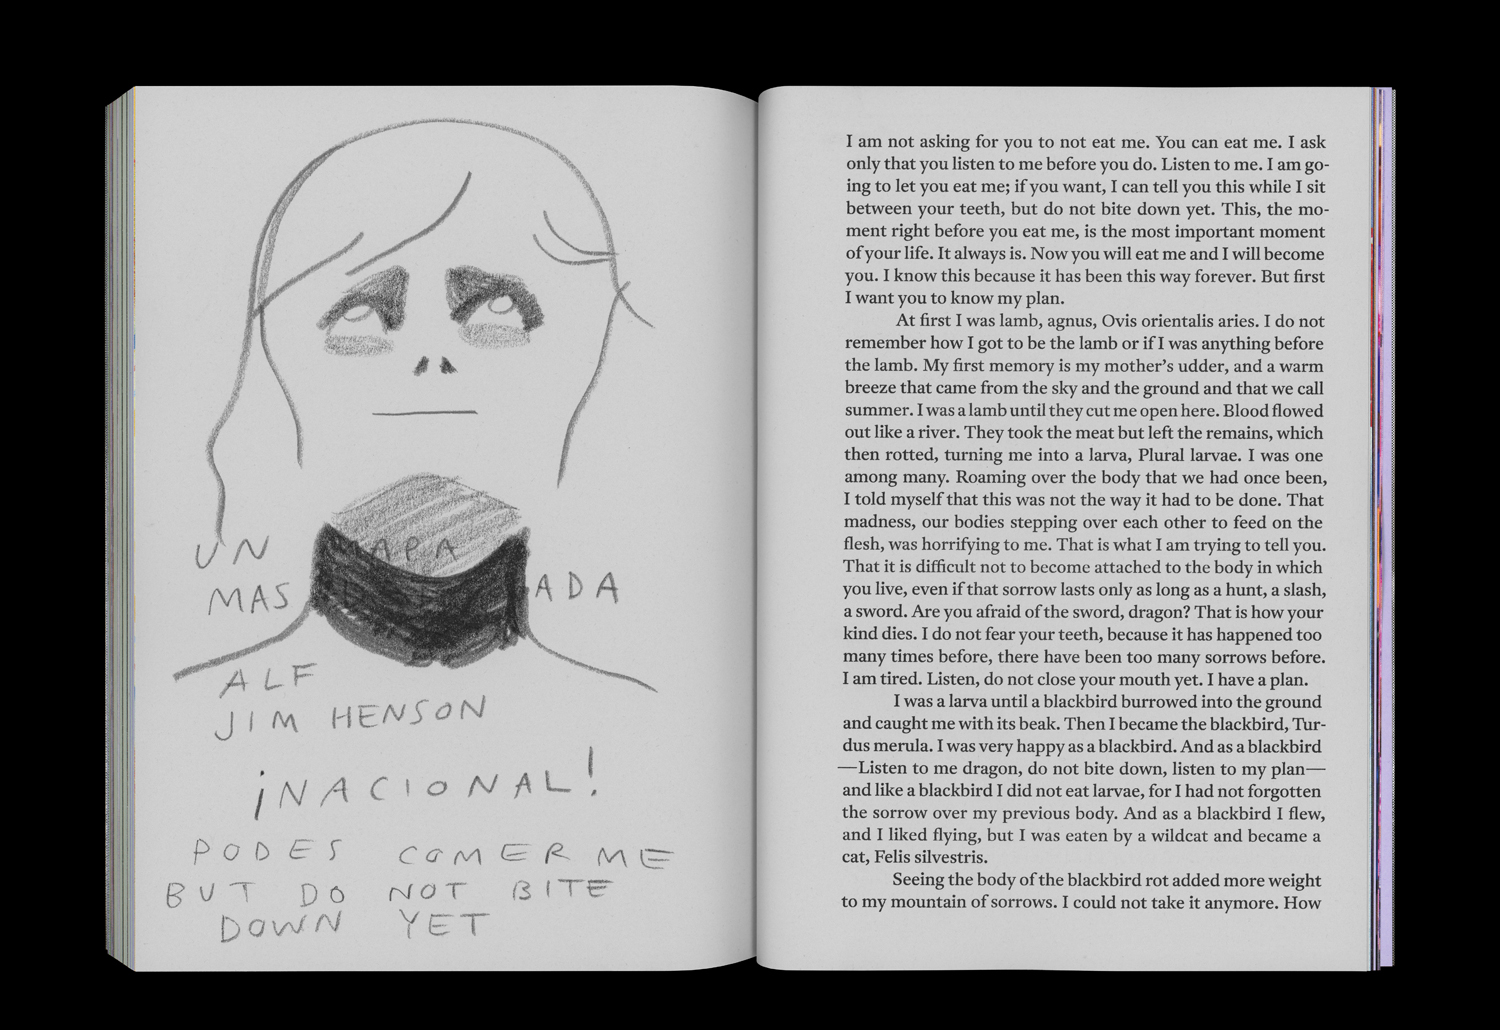 UN MAPA
MAS ADA
ALF
JIM HENSON
¡NACIONAL!
PODES COMER ME
BUT DO NOT BITE
DOWN YET
I am not asking for you to not eat me. You can eat me. I ask
only that you listen to me before you do. Listen to me. I am go-
ing to let you eat me; if you want, I can tell you this while I sit
between your teeth, but do not bite down yet. This, the mo-
ment right before you eat me, is the most important moment
of your life. It always is. Now you will eat me and I will become
you. I know this because it has been this way forever. But first
I want you to know my plan.
At first I was lamb, agnus, Ovis orientalis aries. I do not
remember how I got to be the lamb or if I was anything before
the lamb. My first memory is my mother’s udder, and a warm
breeze that came from the sky and the ground and that we call
summer. I was a lamb until they cut me open here. Blood flowed
out like a river. They took the meat but left the remains, which
then rotted, turning me into a larva, Plural larvae. I was one
among many. Roaming over the body that we had once been,
I told myself that this was not the way it had to be done. That
madness, our bodies stepping over each other to feed on the
flesh, was horrifying to me. That is what I am trying to tell you.
That it is difficult not to become attached to the body in which
you live, even if that sorrow lasts only as long as a hunt, a slash,
a sword. Are you afraid of the sword, dragon? That is how your
kind dies. I do not fear your teeth, because it has happened too
many times before, there have been too many sorrows before.
I am tired. Listen, do not close your mouth yet. I have a plan.
I was a larva until a blackbird burrowed into the ground
and caught me with its beak. Then I became the blackbird, Tur-
dus merula. I was very happy as a blackbird. And as a blackbird
—Listen to me dragon, do not bite down, listen to my plan—
and like a blackbird I did not eat larvae, for I had not forgotten
the sorrow over my previous body. And as a blackbird I flew,
and I liked flying, but I was eaten by a wildcat and became a
cat, Felis silvestris.
Seeing the body of the blackbird rot added more weight
to my mountain of sorrows. I could not take it anymore. How